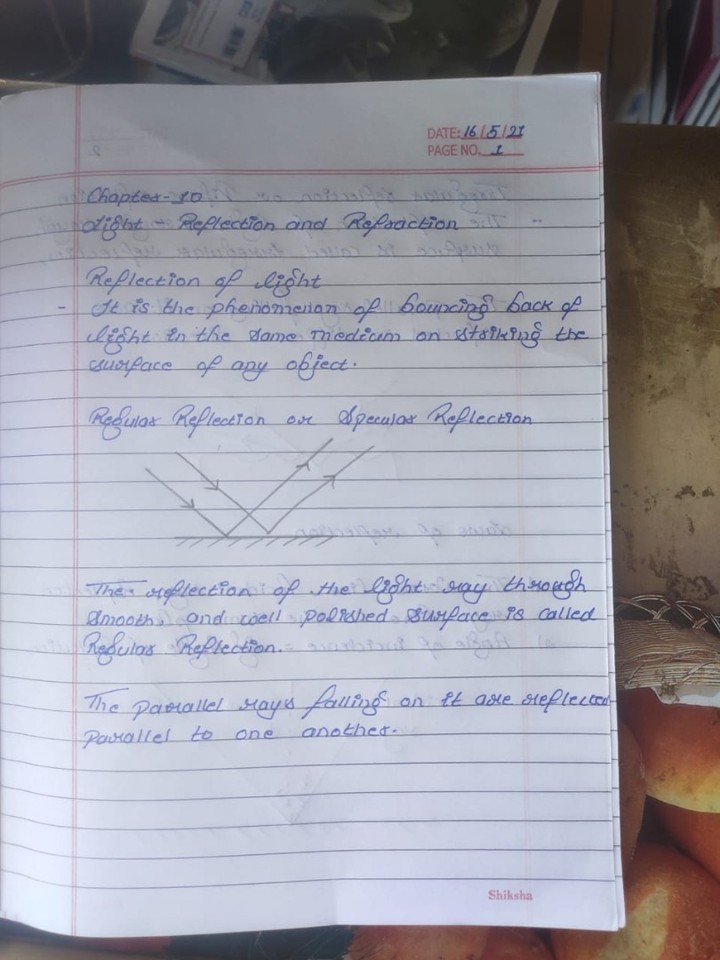 DATE: 16/5/21
PAGE NO. 1
Chapter-10
Light - Reflection and Refraction
Reflection of light
- It is the phenomenon of bouncing back of
light in the same medium on striking the
surface of any object.
Regular Reflection or Specular Reflection
The reflection of the light ray through
smooth, and well polished surface is called
Regular Reflection.
The parallel rays falling on it are reflected
parallel to one another.
Shiksha